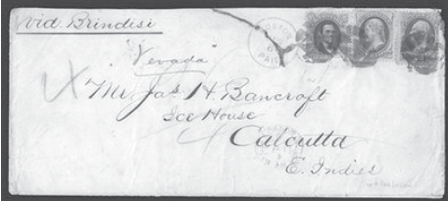 via Brindisi
"Nevada"
Mr Jas H. Bancroft
Ice House
Calcutta
E. Indies